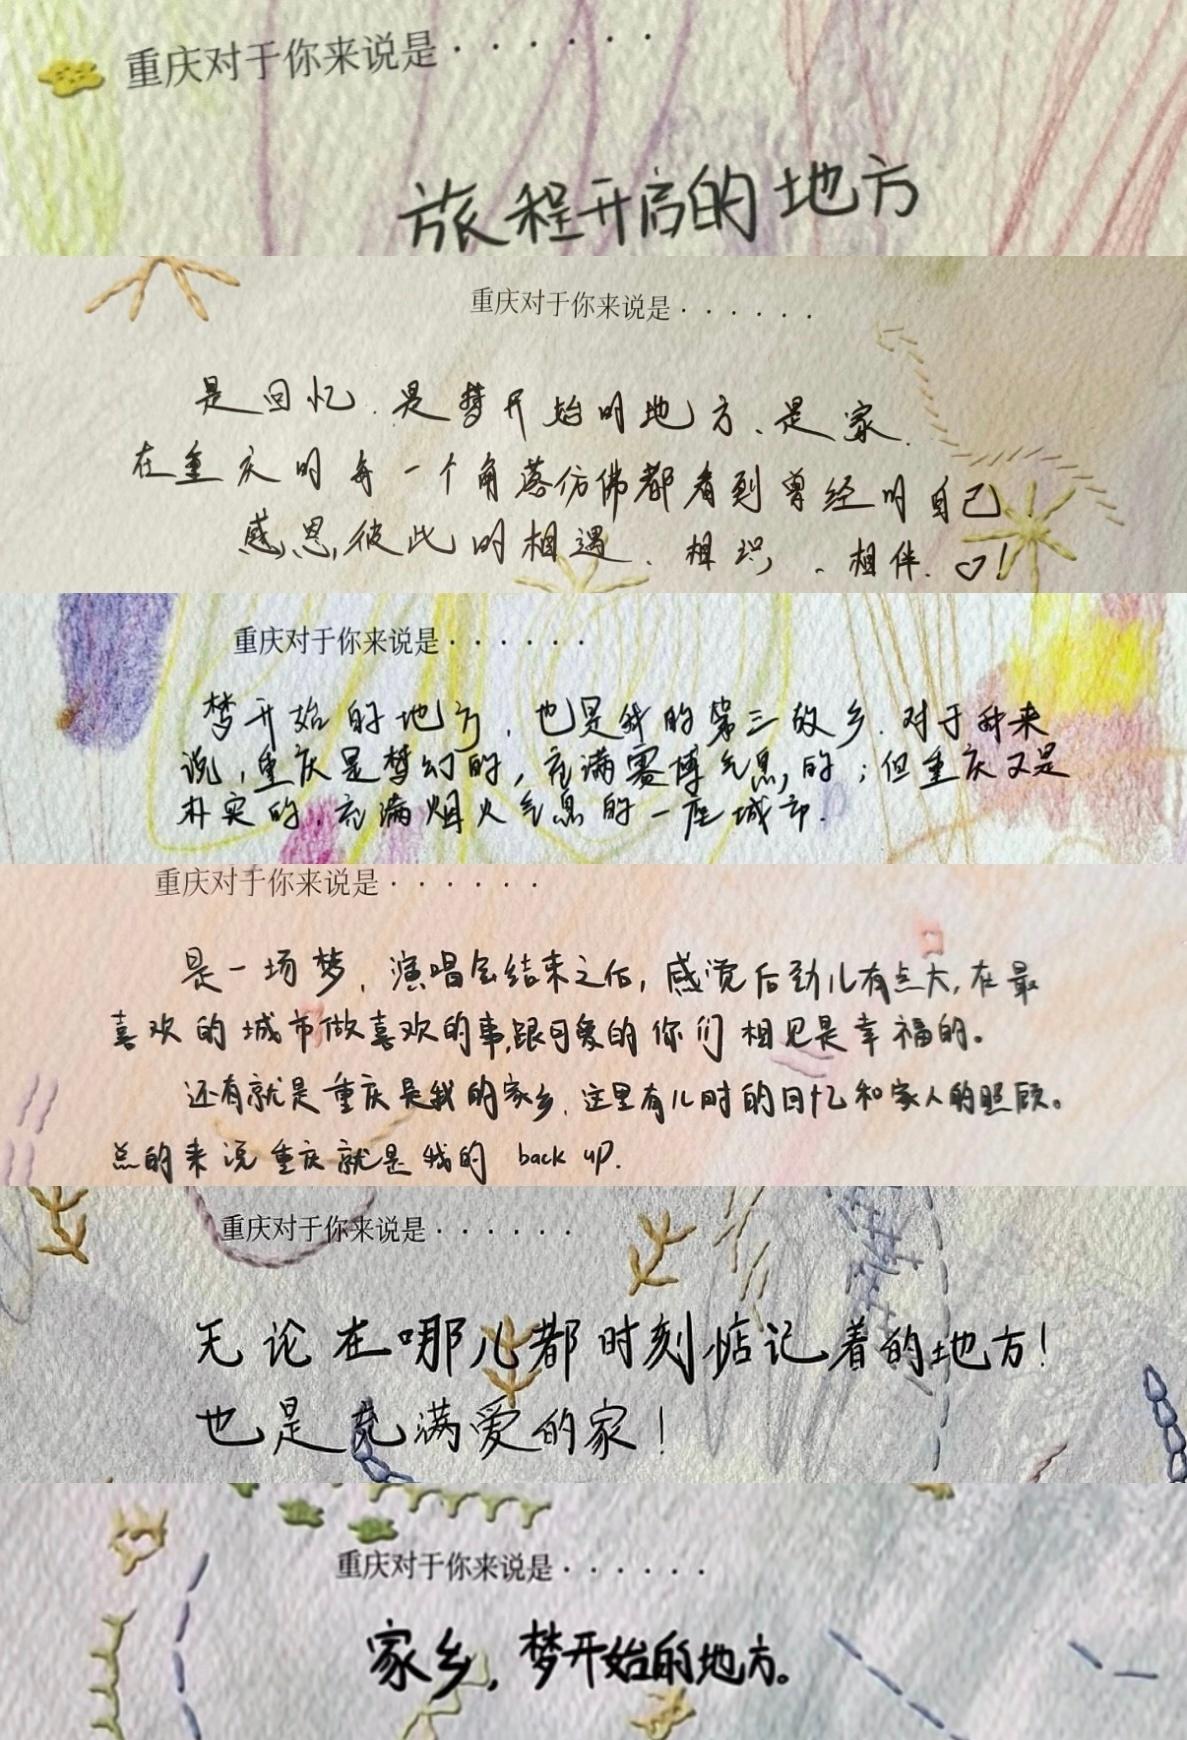 重庆对于你来说是······
旅程开启的地方
重庆对于你来说是······
是回忆.是梦开始的地方、是家.
在重庆的每一个角落仿佛都看到曾经的自己
感恩,彼此的相遇、相识、相伴.♡!
重庆对于你来说是······
梦开始的地方,也是我的第三故乡.对于我来
说,重庆是梦幻的,充满赛博气息的;但重庆又是
朴实的.充满烟火气息的一座城市.
重庆对于你来说是······
是一场梦,演唱会结束之后,感觉后劲儿有点大,在最
喜欢的城市做喜欢的事,跟可爱的你们相见是幸福的。
还有就是重庆是我的家乡.这里有儿时的回忆和家人的照顾。
总的来说重庆就是我的 back up.
重庆对于你来说是······
无论在哪儿都时刻惦记着的地方!
也是充满爱的家!
重庆对于你来说是······
家乡,梦开始的地方。